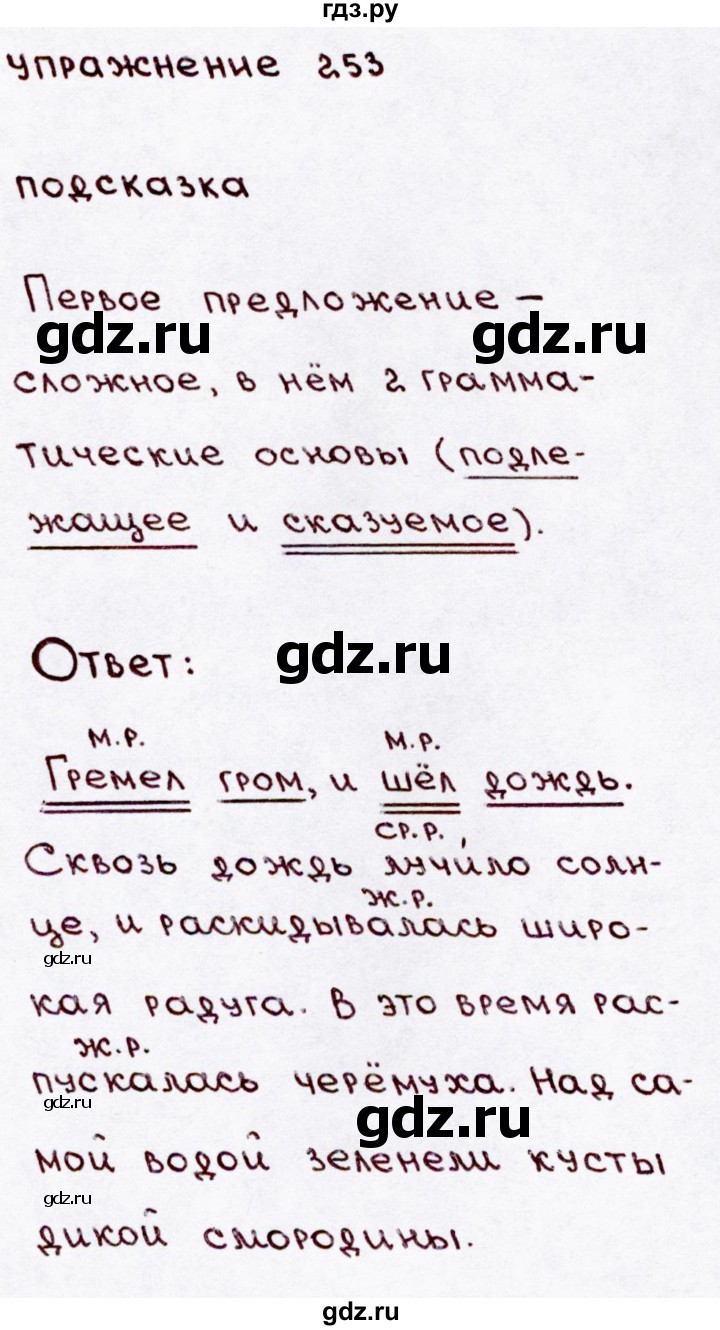 гдз.ру
упражнение 253
подсказка
Первое предложение –
gdz.ru gdz.ru
сложное, в нём 2 грамма-
тические основы (подле-
жащее и сказуемое).
Ответ: gdz.ru
м.р. м.р.
Гремел гром, и шёл дождь.
ср.р.
Сквозь дождь лучило солн-
ж.р.
це, и раскидывалась широ-
gdz.ru
кая радуга. В это время рас-
ж.р.
пускалась черёмуха. Над са-
gdz.ru gdz.ru
мой водой зеленели кусты
gdz.ru
дикой смородины.
gdz.ru